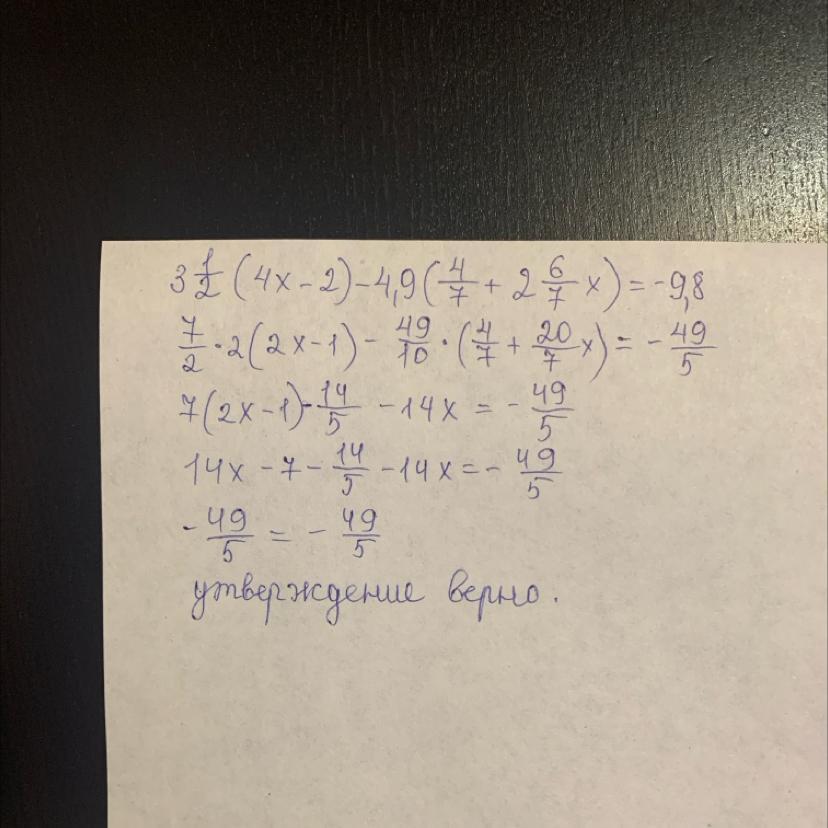 3 1/2 (4x - 2) - 4,9(4/7 + 2 6/7 x) = -9,8
7/2 · 2(2x - 1) - 49/10 · (4/7 + 20/7 x) = - 49/5
7(2x - 1) - 14/5 - 14x = - 49/5
14x - 7 - 14/5 - 14x = - 49/5
- 49/5 = - 49/5
утверждение верно.